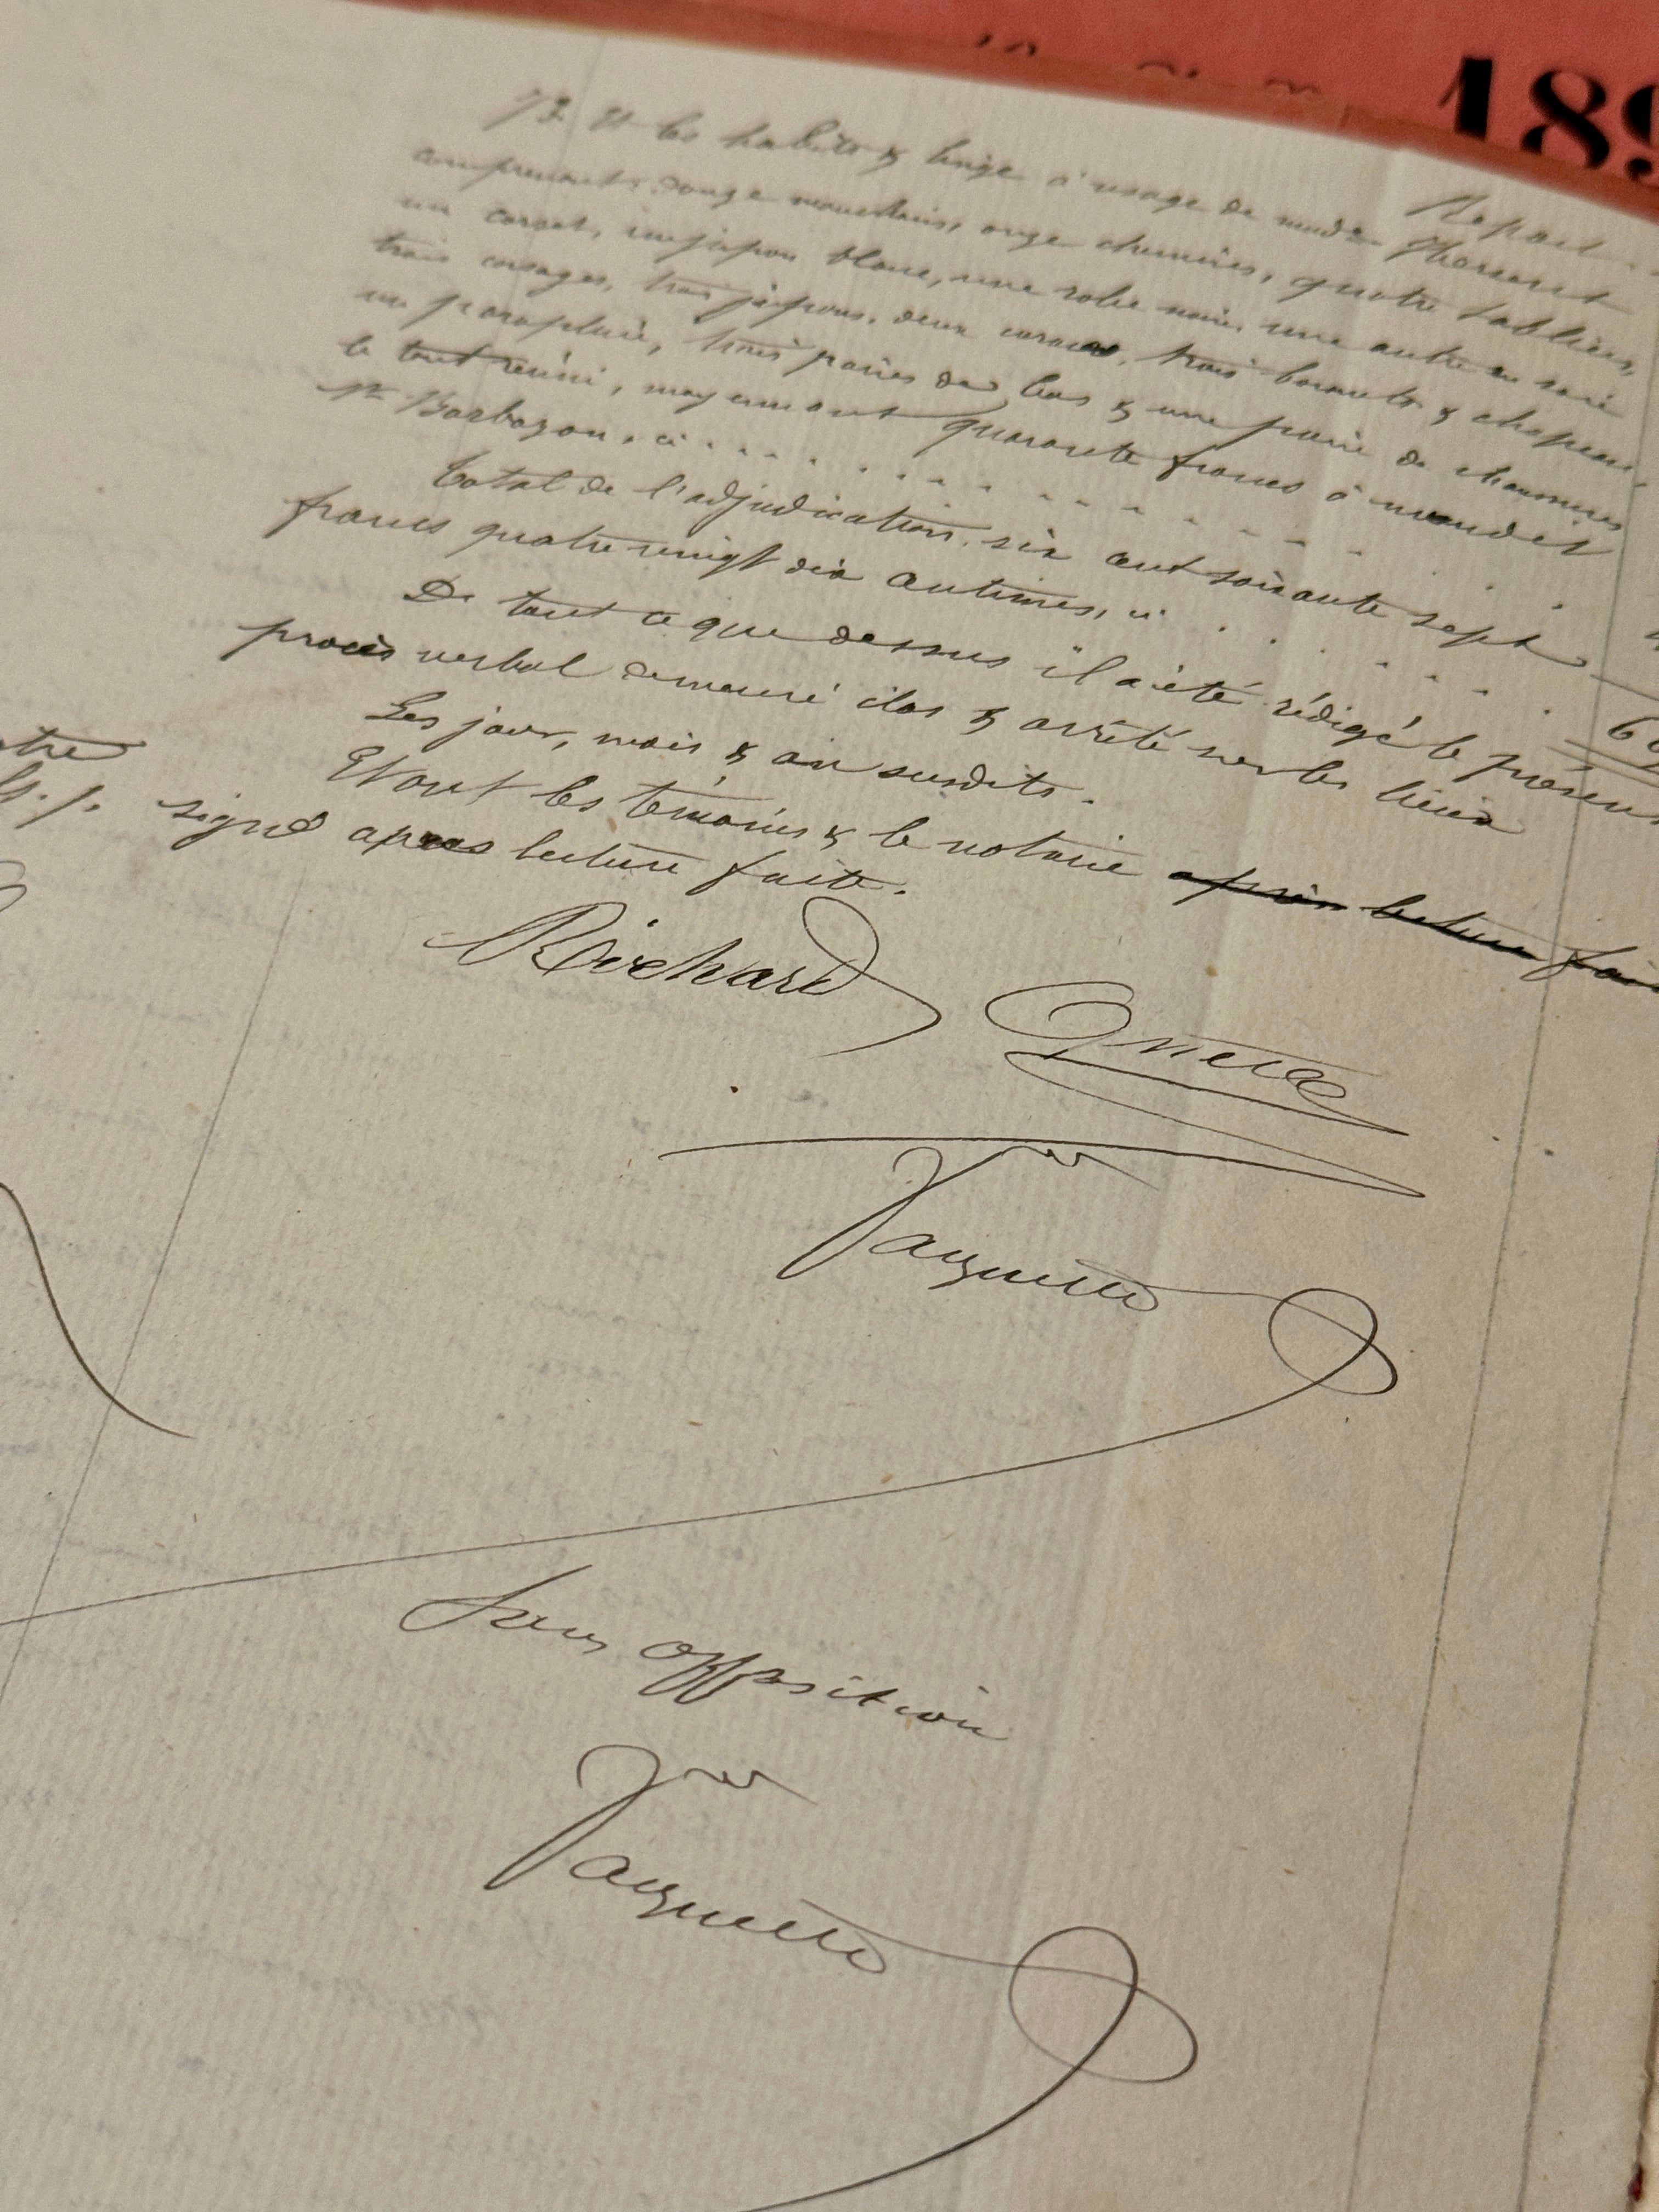 189
Report
73. Et les habits & linge à usage de made Thevenet
comprenant: douze mouchoirs, onze chemises, quatre tabliers,
un corset, un jupon blanc, une robe noire, une autre en soie
trois corsages, trois jupons, deux trois bonnets & chapeau,
un parapluie, trois paires de bas & une paire de chaussures
le tout réuni, moyennant quarante francs à
Barbazon, ci . . . . . . . . . . . .
Total de l'adjudication. six cent soixante sept
francs quatre vingt dix centimes, ci . . . . . . . .
De tout ce que dessus il a été rédigé le présent
procès verbal demeuré clos & arrêté sur les lieux
Les jour, mois & an susdits.
Et ont les témoins & le notaire après lecture fai
signé après lecture faite.
Richard
Jacquette
Sans opposition
Jacquette